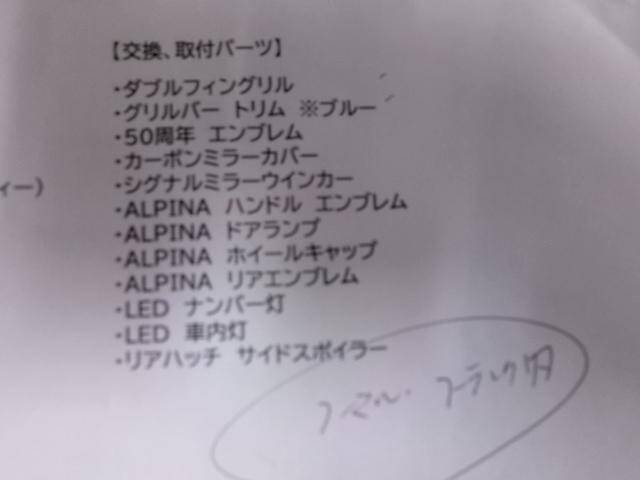 【交換、取付パーツ】
・ダブルフィングリル
・グリルバー トリム ※ブルー
・50周年 エンブレム
・カーボンミラーカバー
ィー)
・シグナルミラーウインカー
・ALPINA ハンドル エンブレム
・ALPINA ドアランプ
・ALPINA ホイールキャップ
・ALPINA リアエンブレム
・LED ナンバー灯
・LED 車内灯
・リアハッチ サイドスポイラー